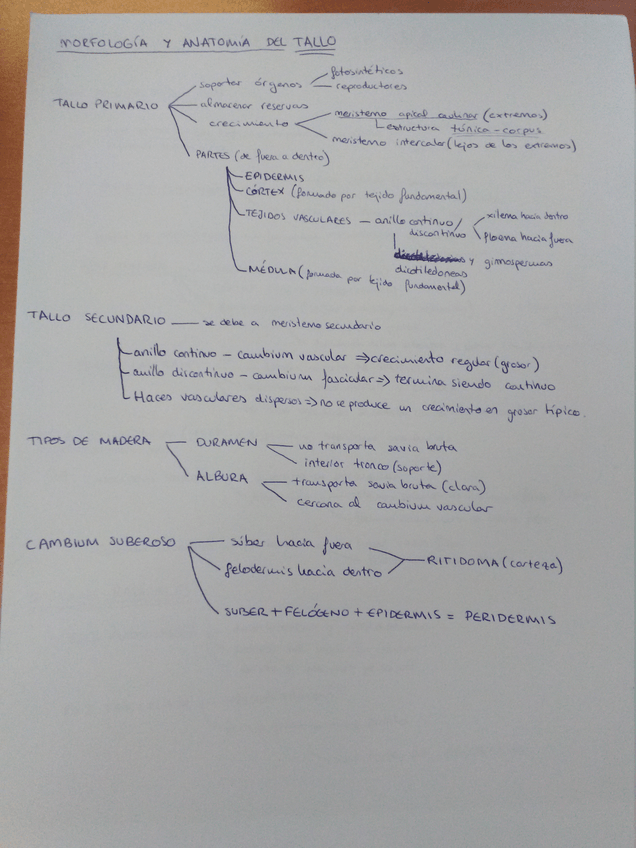 MORFOLOGÍA Y ANATOMÍA DEL TALLO
fotosintéticos
soportar órganos
reproductores
TALLO PRIMARIO
almacenar reservas
crecimiento
meristemo apical caulinar (extremos)
estructura túnica-corpus
meristemo intercalar (lejos de los extremos)
PARTES (de fuera a dentro)
EPIDERMIS
CÓRTEX (formado por tejido fundamental)
TEJIDOS VASCULARES - anillo continuo/
discontinuo
xilema hacia dentro
floema hacia fuera
y gimnospermas
dicotiledoneas
MÉDULA (formada por tejido fundamental)
TALLO SECUNDARIO - se debe a meristemo secundario
anillo continuo - cambium vascular ⇒ crecimiento regular (grosor)
anillo discontinuo - cambium fascicular ⇒ termina siendo continuo
Haces vasculares dispersos ⇒ no se produce un crecimiento en grosor típico.
TIPOS DE MADERA
DURAMEN
no transporta savia bruta
interior tronco (soporte)
ALBURA
transporta savia bruta (clara)
cercana al cambium vascular
CAMBIUM SUBEROSO
súber hacia fuera
felodermis hacia dentro
RITIDOMA (corteza)
SUBER + FELÓGENO + EPIDERMIS = PERIDERMIS